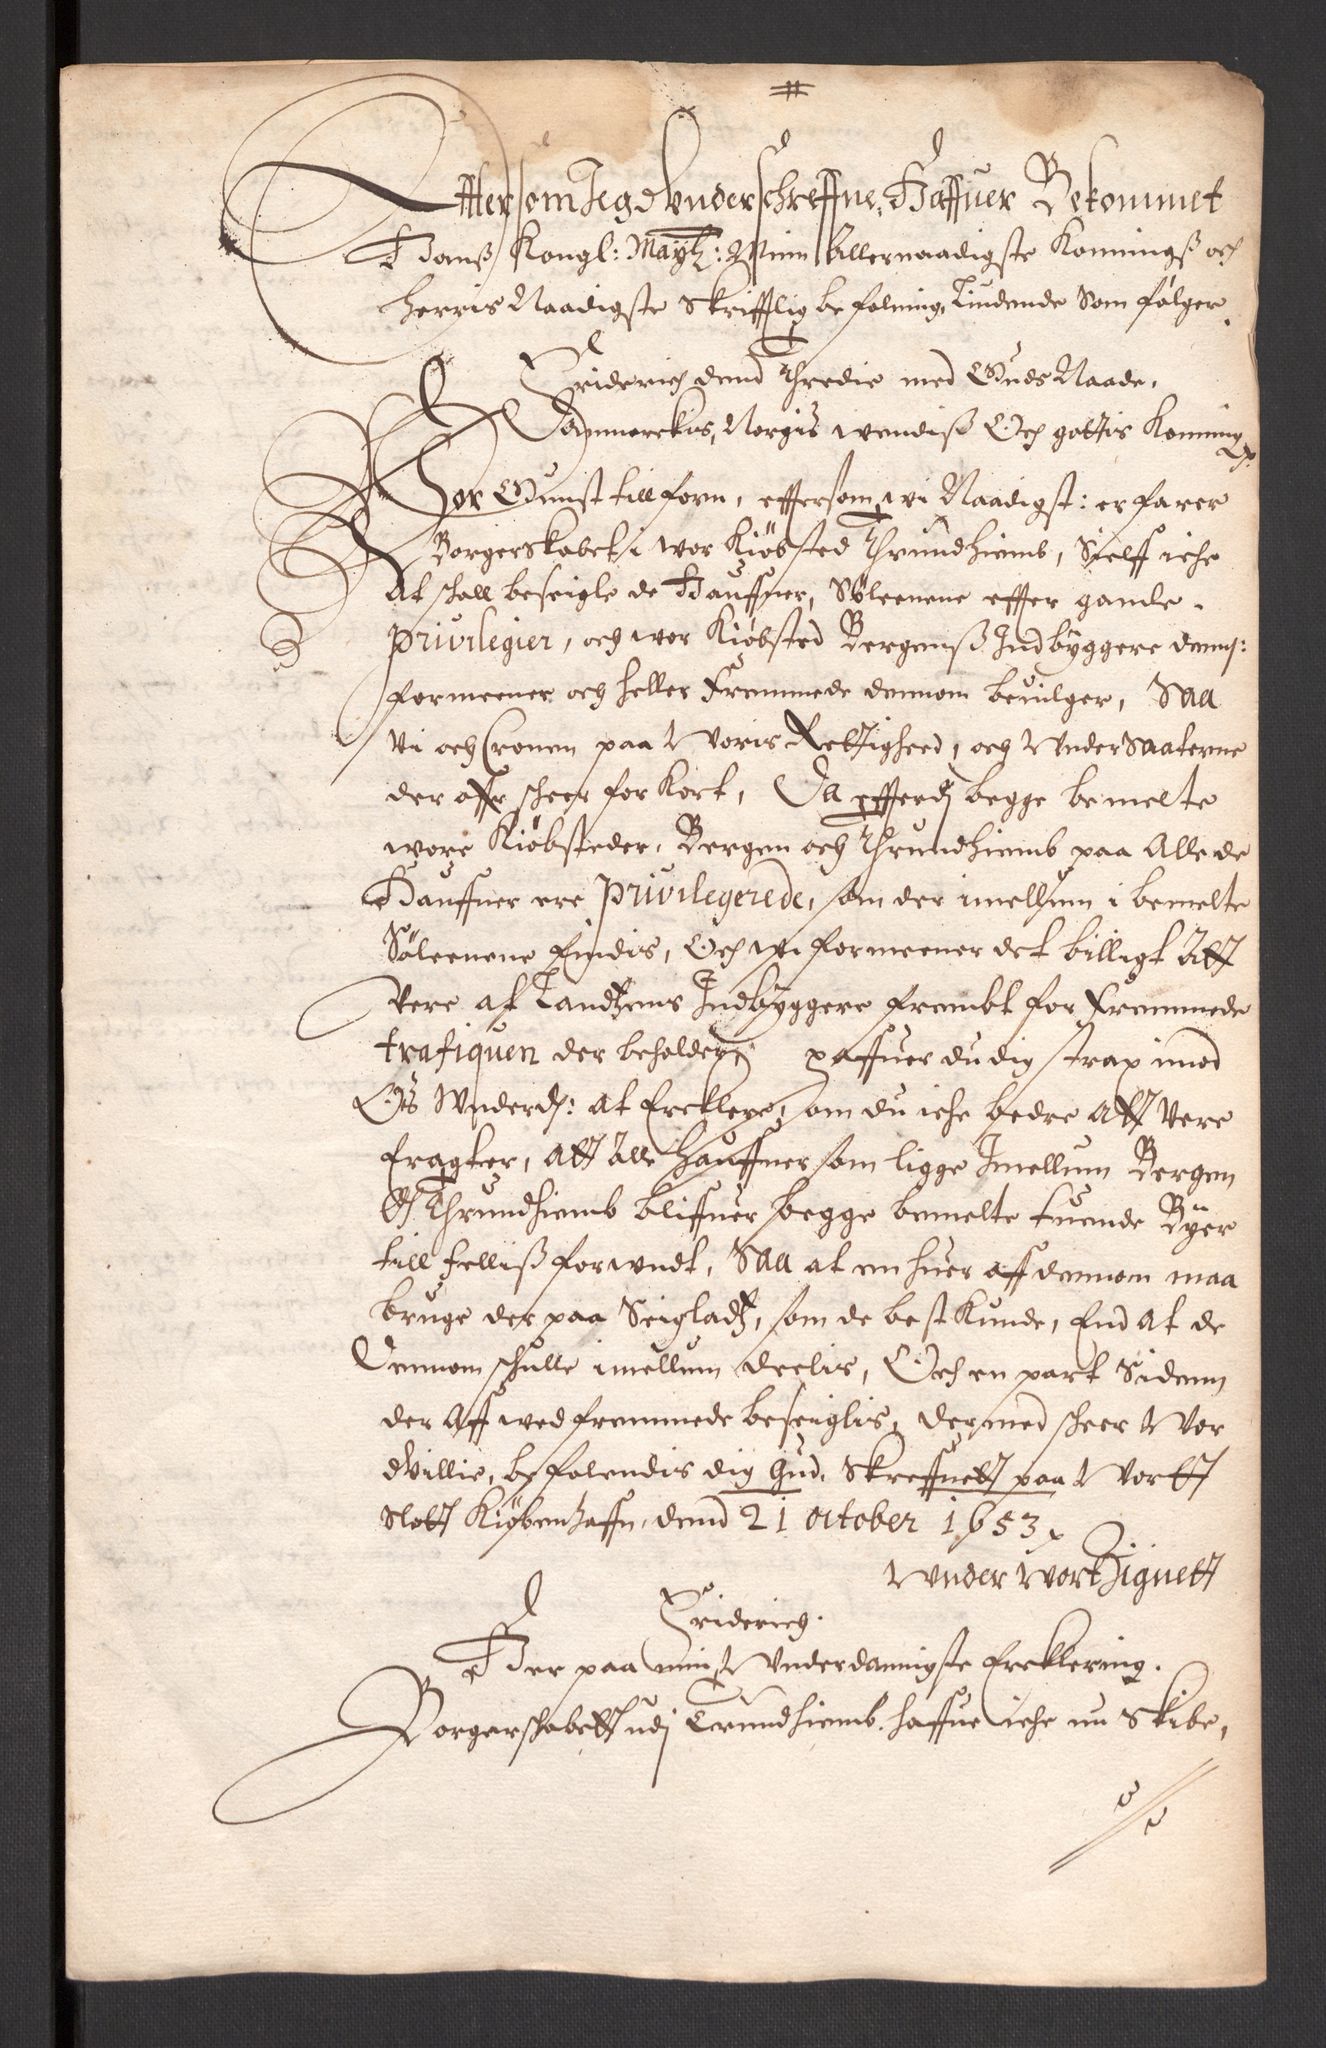 Effter som Jeg Vnderschreffne, Haffuer Bekommet
Hanß Kongl: Maytz: Minn Allernaadigste Konningß och
Herris Naadigste Skrifftlig befalning, Liudende Som følger.
Friderich dend Thredie med Guds Naade,
Danmarckis, Norgis Wendiß Och gottis Konning
Wor Gunst tillforn, effersom wi Naadigst: erfarer
Borgerskabet i wor Kiøbsted Thrundhiemb, Sielff iche
At schall beseigle de Hauffner, Søleenene effter gamle
Privilegier, och wor Kiøbsted Bergenß Indbyggere dennom:
formeener och heller Fremmede dennom beuilger, Saa
Vi och Cronen paa Voris Rettighed, och Vndersaaterne
der offr scheer for Kort, Da efftterdj begge bemelte
wore Kiøbsteder, Bergen och Thrundhiemb paa Alle de
Hauffner ere Privilegerede, som der imellum i bemelte
Søleenene Findis, Och wi formeener det billigt Att
Vere at Landtzens Indbyggere frembt for Fremmede
trafiquen der beholder, haffuer du dig strax imod
Os Vnderd: at Erklere, om du iche bedre Att Vere
Eragter, Att Alle Hauffner som ligge Imellum Bergen
Och Thrundhiemb bliffuer begge bemelte tuende Byer
till felliß forundt, Saa at en huer aff dennom maa
bruge der paa Seigladtz, som de best Kunde, End at de
Dennom schulle imellum deelis, Och en part Sidenn
der Aff wed fremmede beseiglis, dermed scheer Vor
Villie, befalendis dig Gud, Skreffuett paa Vortt
Slott Kiøbenhaffn, dend 21 October 1653
Vnder Vort Zignett
Friderich.
Her paa min Vnderdanigste Ercklering.
Borgerschabett udj Trundhiemb haffue iche nu Skibe,